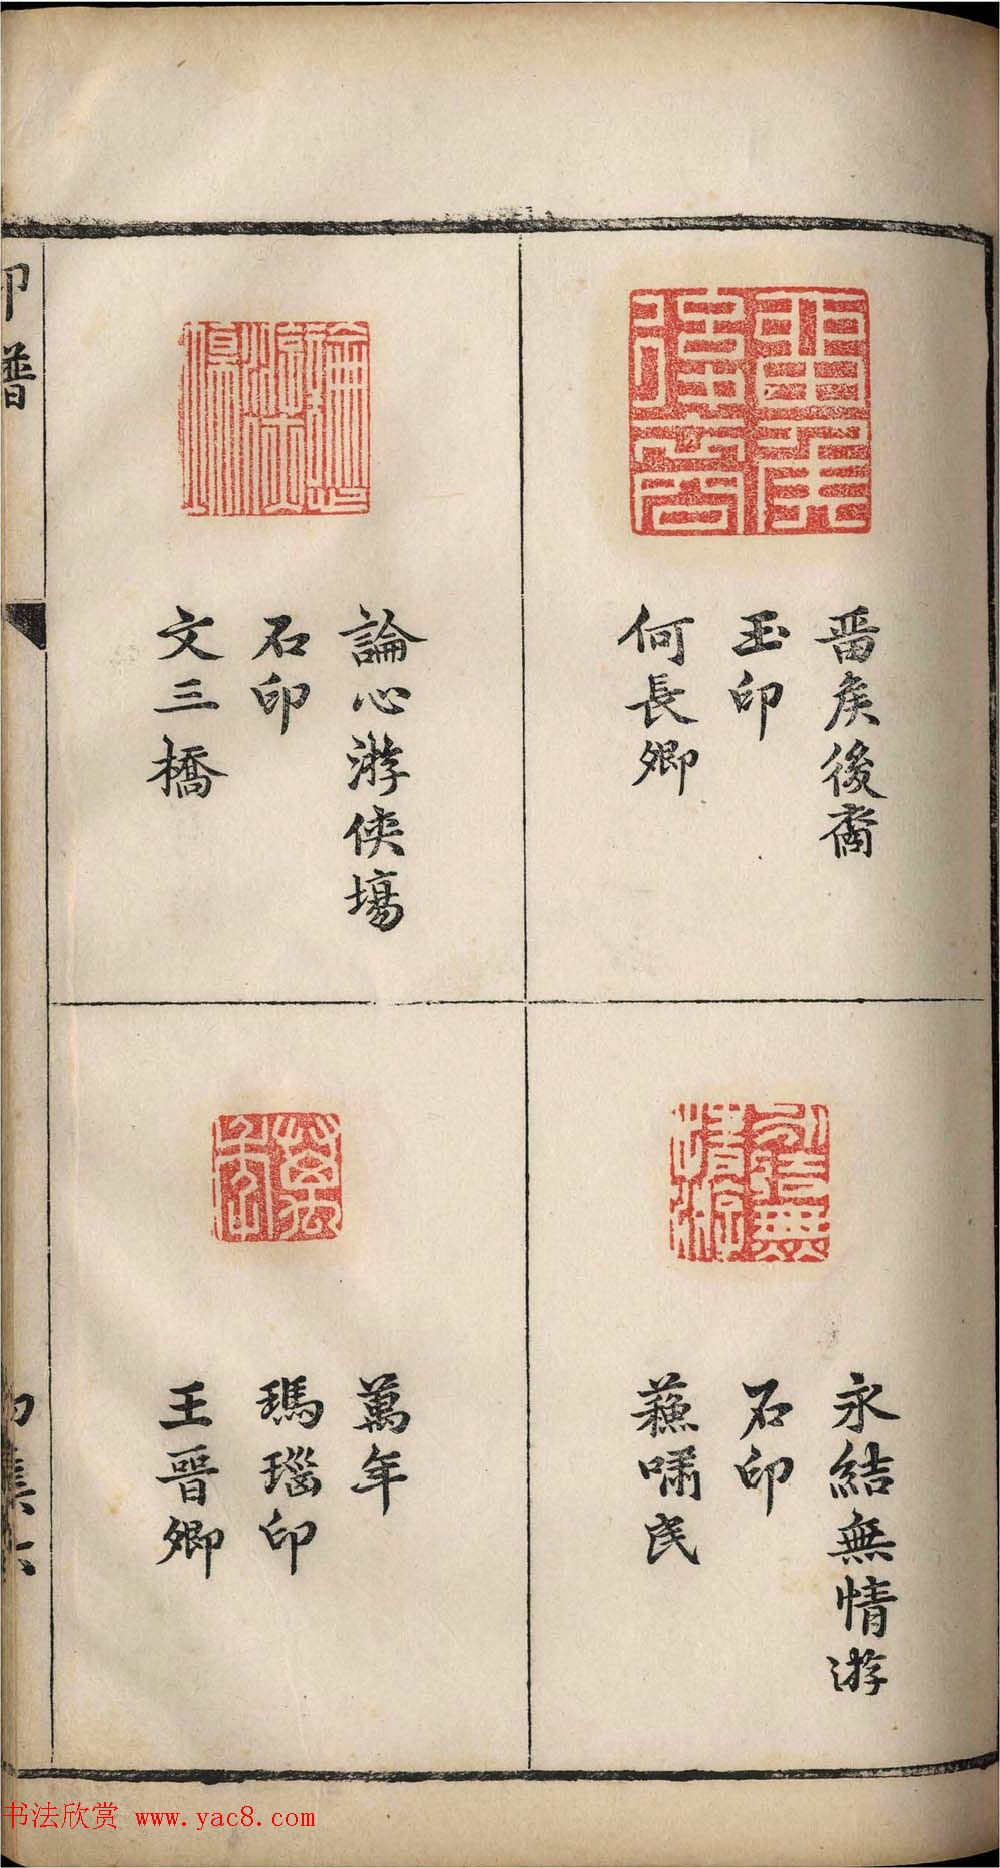 晉矦後裔
玉印
何長卿
永結無情游
石印
蘓嘯民
論心游俠場
石印
文三橋
萬年
瑪瑙印
王晉卿
印譜
书法欣赏 www.yac8.com